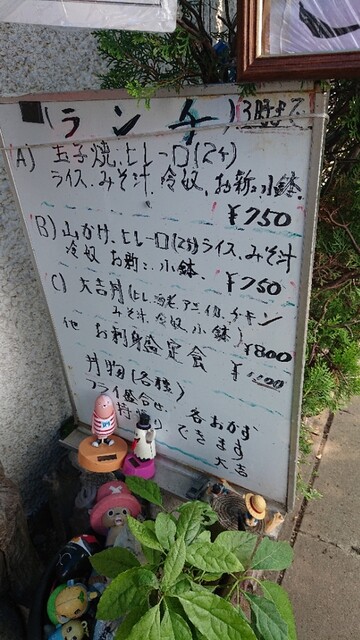 (ランチ) 3時まで
A) 玉子焼、ヒレ一口(2ケ)
ライス、みそ汁、冷奴、お新、小鉢
¥750
B) 山かけ、ヒレ一口(2ケ)ライス、みそ汁
冷奴 お新、小鉢
¥750
C) 大吉丼(ヒレ、海老、アジ、イカ、チキン
みそ汁、冷奴、小鉢) ¥800
他 お刺身定食
丼物(各種)
フライ盛合せ 各おかず
できます
大吉